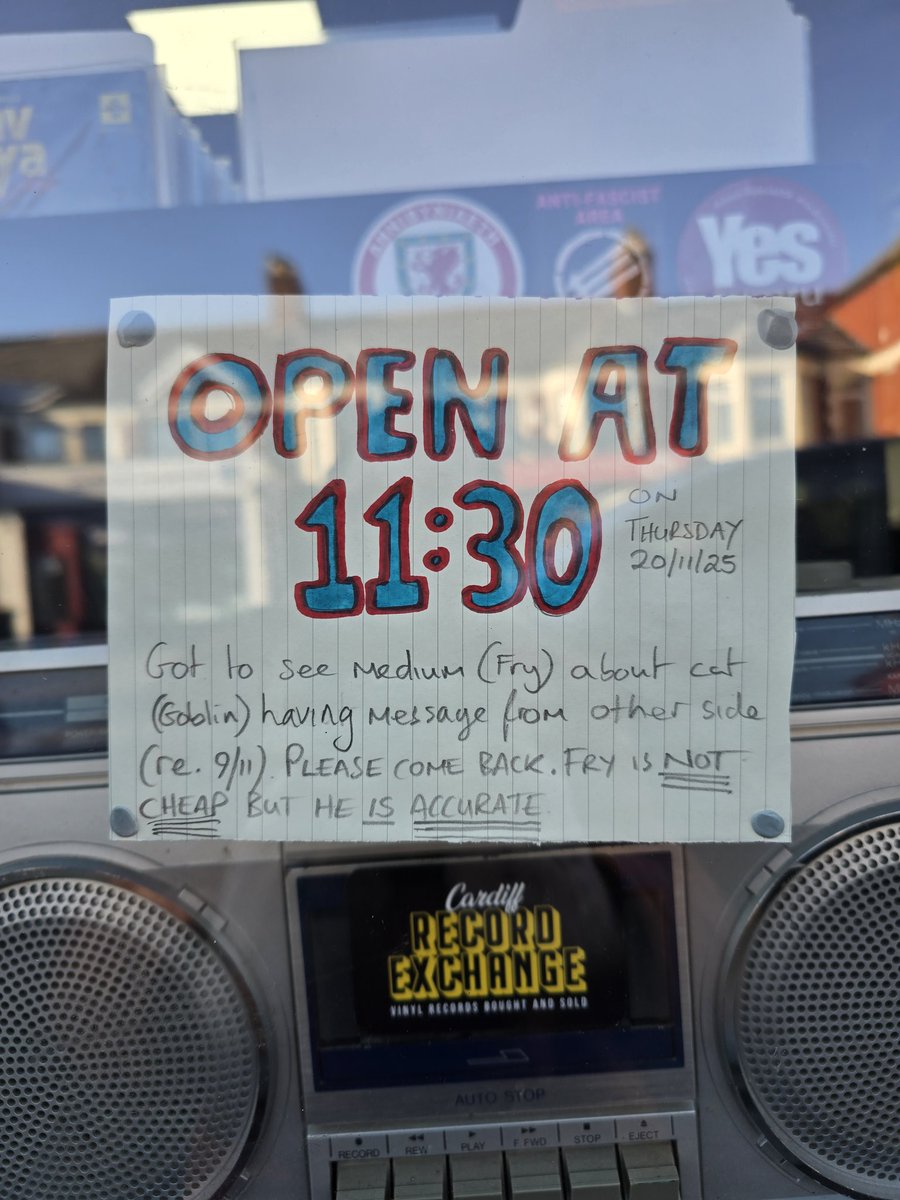 ANTI-FASCIST
AREA
Yes
OPEN AT
11:30
ON
THURSDAY
20/11/25
Got to see medium (Fry) about cat
(Goblin) having message from other side
(re. 9/11). PLEASE COME BACK. FRY IS NOT
CHEAP BUT HE IS ACCURATE
Cardiff
RECORD
EXCHANGE
VINYL RECORDS BOUGHT AND SOLD
AUTO STOP
RECORD
REW
PLAY
F.FWD
STOP
EJECT